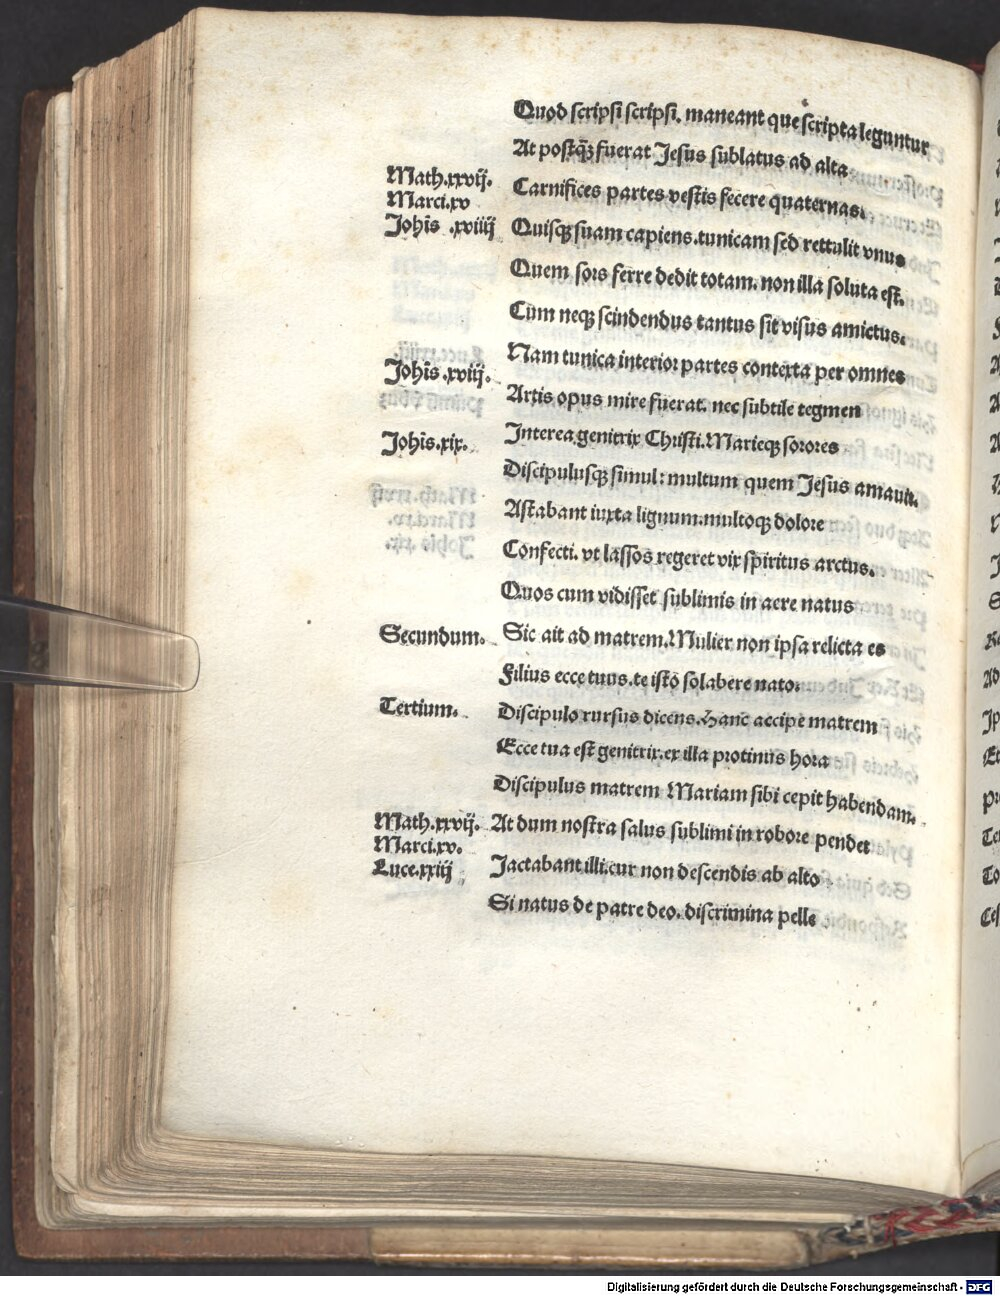 Quod scripsi scripsi. maneant que scripta leguntur
At postq̃ꝫ fuerat Jesus sublatus ad alta
Math.xxvij.
Carnifices partes vestis fecere quaternas.
Marci.xv
Johĩs .xviiij
Quisqꝫ suam capiens.tunicam sed rettulit vnus
Quem sors ferre dedit totam. non illa soluta est.
Cũm neqꝫ scindendus tantus sit visus amictus.
Nam tunica interior partes contexta per omnes
Johĩs .xviij.
Artis opus mire fuerat. nec subtile tegmen
Johĩs.xix.
Interea genitrix Christi.Marieqꝫ sorores
Discipulusqꝫ simul: multum quem Jesus amauit.
Astabant iuxta lignum.multoqꝫ dolore
Confecti. vt lassos regeret vix spiritus arctus.
Quos cum vidisset sublimis in aere natus
Secundum.
Sic ait ad matrem.Mulier non ipsa relicta es
Filius ecce tuus.te istõ solabere nato.
Tertium.
Discipulo rursus dicens.Hanc accipe matrem
Ecce tua est genitrix.ex illa protinus hora
Discipulus matrem Mariam sibi cepit habendam.
Math.xxvij.
At dum nostra salus sublimi in robore pendet
Marci.xv.
Luce.xxiij
Jactabant illi.cur non descendis ab alto
Si natus de patre deo. discrimina pelle
Digitalisierung gefördert durch die Deutsche Forschungsgemeinschaft - DFG